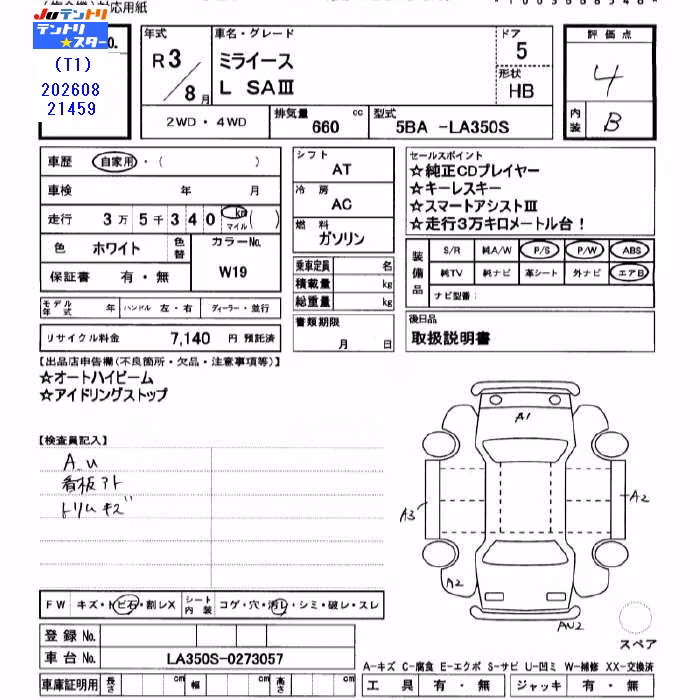 対応用紙
JUテントリ
テントリ
★スター
(T1)
202608
21459
No.
年式
R3/8月
車名・グレード
ミライース
L SAⅢ
ドア
5
形状
HB
評価点
4
内装
B
2WD・4WD
排気量 cc
660
型式
5BA -LA350S
車歴 自家用・( )
車検 年 月
走行 3万5千340 km マイル ( )
色 ホワイト
色替
カラーNo.
W19
保証書 有・無
モデル年式 年 ハンドル 左・右 ディーラー・並行
リサイクル料金 7,140 円 預託済
シフト
AT
冷房
AC
燃料
ガソリン
乗車定員 名
積載量 kg
総重量 kg
書類期限
月 日
セールスポイント
☆純正CDプレイヤー
☆キーレスキー
☆スマートアシストⅢ
☆走行3万キロメートル台！
装備品
S/R 純A/W P/S P/W ABS
純TV 純ナビ 革シート 外ナビ エアB
ナビ型番：
後日品
取扱説明書
【出品店申告欄(不良箇所・欠品・注意事項等)】
☆オートハイビーム
☆アイドリングストップ
【検査員記入】
A_U
看板アト
トリムキズ
A1
A3
A2
A2
AU2
スペア
FW キズ・トビ石・割レX
シート内装 コゲ・穴・汚レ・シミ・破レ・スレ
登録 No.
車台 No. LA350S-0273057
車庫証明用 長さ cm 幅 cm 高さ cm
A-キズ C-腐食 E-エクボ S-サビ U-凹ミ W-補修 XX-交換済
工具 有・無 ジャッキ 有・無